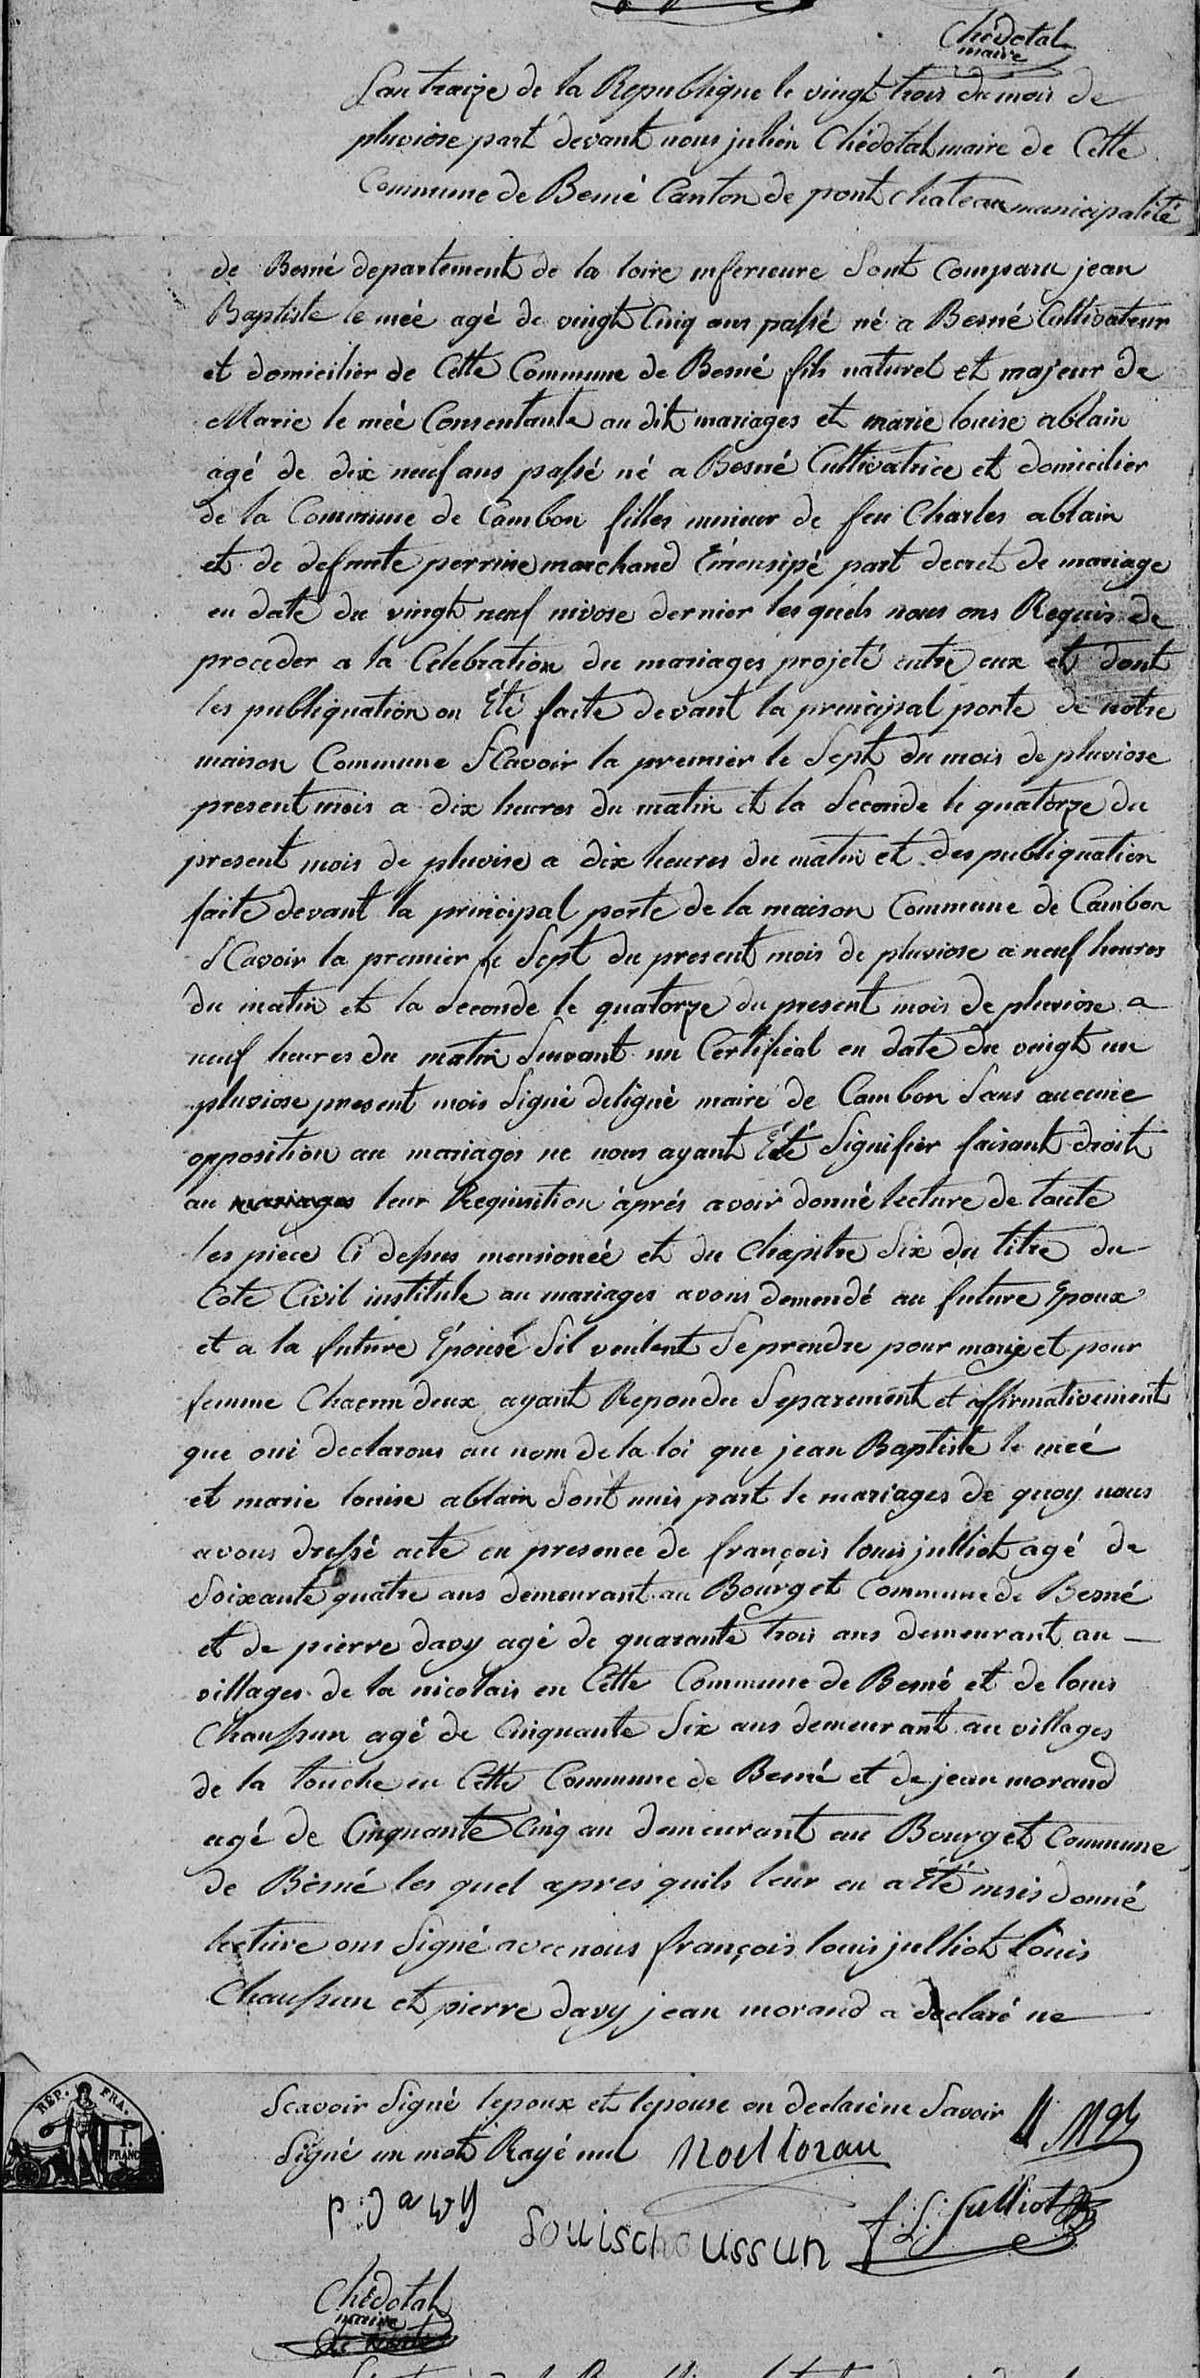 Chédotal
maire
Lan traize de la Republique le vingt trois du mois de
pluviose part devant nous julien Chédotal maire de Cette
Commune de Besné Canton de pont chateau municipalité
de Besné departement de la loire inferieure Sont Comparu jean
Baptiste le méé agé de vingt Cinq ans passé né a Besné Cultivateur
et domicilier de Cette Commune de Besné fils naturel et majeur de
Marie le méé Consentante au dit mariages et marie louise ablain
agé de dix neuf ans passé né a Besné Cultivatrice et domicilier
de la Commune de Cambon filles mineur de feu Charles ablain
et de defunte perrine marchand Emensipé part decret de mariage
en date du vingt neuf nivose dernier les quels nous ons Requis de
proceder a la Célebration du mariages projeté entre eux et dont
les publiquation on Été faite devant la principal porte de notre
maison Commune SCavoir la premier le Sept du mois de pluviose
present mois a dix heures du matin et la Seconde le quatorze du
present mois de pluvise a dix heures du matin et des publiquation
faite devant la principal porte de la maison Commune de Cambon
SCavoir la premier le Sept du present mois de pluviose a neuf heures
du matin et la Seconde le quatorze du present mois de pluviose a
neuf heures du matin Suivant un Certificat en date du vingt un
pluviose present mois Signé deligné maire de Cambon Sans aucune
opposition au mariages ne nous ayant Été Signifier faisant droit
au mariages leur Requisition après avoir donné lecture de toute
les piece Ci dessus mensionéé et du chapitre Six du titre du
Cote Civil institule au mariages avons demendé au future Epoux
et a la future Épousé Sil veulent Se prendre pour marie et pour
femme Chacun deux ayant Repondu Separement et affirmativement
que oui declarons au nom de la loi que jean Baptiste le méé
et marie louise ablain Sont unis part le mariages de quoy nous
avons dressé acte en presence de françois louis julliot agé de
Soixante quatre ans demeurant au Bourg et Commune de Besné
et de pierre davy agé de quarante trois ans demeurant au
villages de la nicolais en Cette Commune de Besné et de louis
Chaussun agé de Cinquante Six ans demeurant au villages
de la touche en Cette Commune de Besné et de jean morand
agé de Cinquante Cinq an demeurant au Bourg et Commune
de Besné les quel apres quils leur en a Été msis donné
lecture ons Signé avec nous françois louis julliot louis
Chaussun et pierre davy jean morand a declaré ne
Scavoir Signé lepoux et lepouse on declaréne Savoir
Signé un mot Rayé nul
REP. FRA.
1
FRANC
p: Dawy
Louischoussun
f: L: Julliot
Chédotal
maire